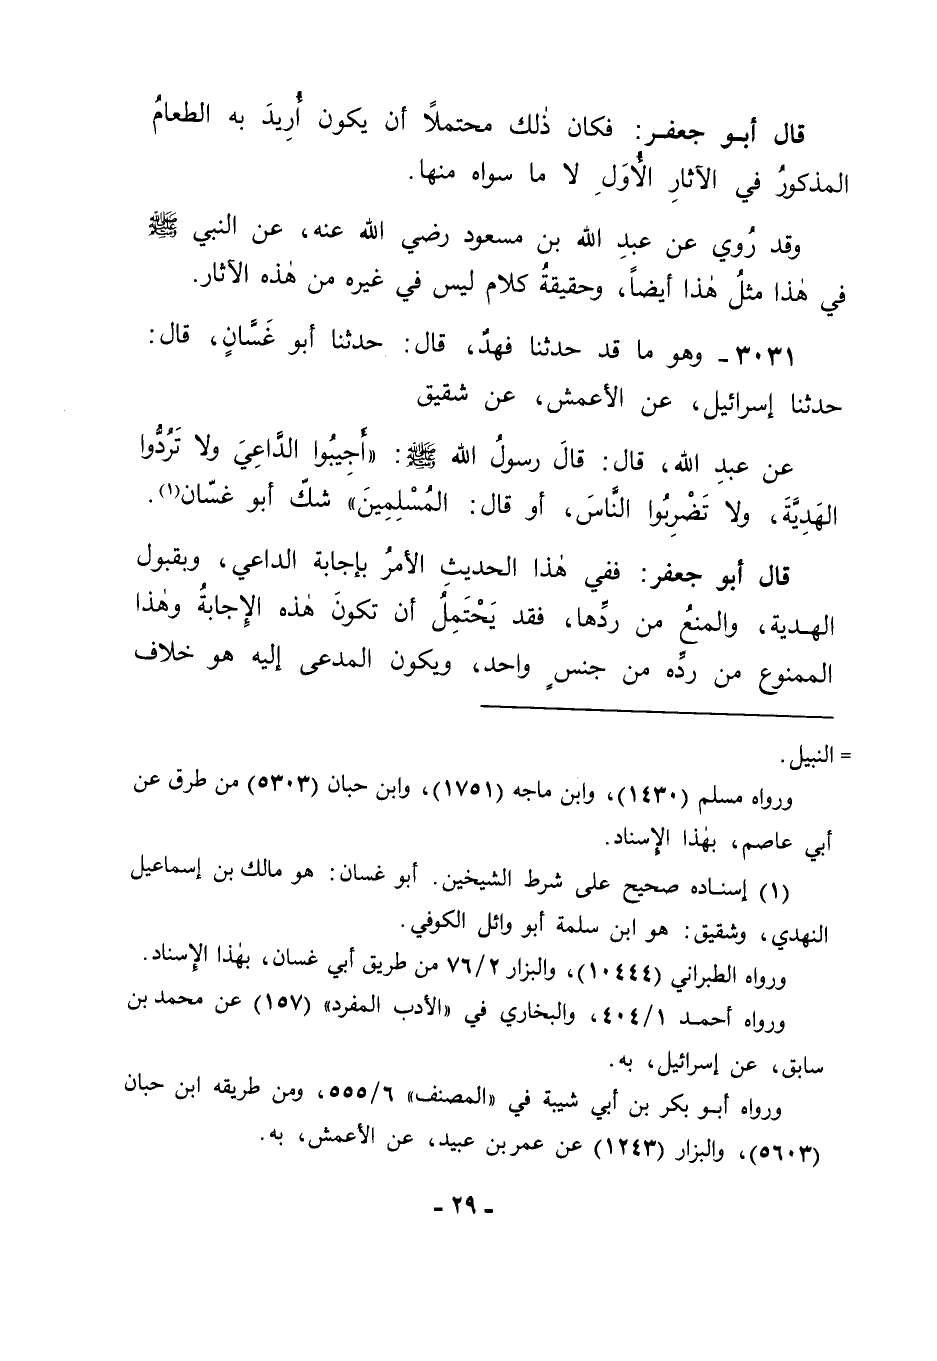 قال أبـو جعفـر: فكان ذٰلك محتملاً أن يكون أُرِيدَ به الطعامُ
المذكورُ في الآثارِ الأُوَلِ لا ما سواه منها.
وقد رُوي عن عبدِ الله بن مسعود رضي الله عنه، عن النبي ﷺ
في هٰذا مثلُ هٰذا أيضاً، وحقيقةُ كلام ليس في غيره من هٰذه الآثار.
٣٠٣١ ـ وهو ما قد حدثنا فهدٌ، قال: حدثنا أبو غَسَّانٍ، قال:
حدثنا إسرائيل، عن الأعمش، عن شقيق
عن عبدِ الله، قال: قالَ رسولُ الله ﷺ: «أَجِيبُوا الدَّاعِيَ ولا تَرُدُّوا
الهَدِيَّةَ، ولا تَضْرِبُوا النَّاسَ، أو قال: المُسْلِمِينَ» شكّ أبو غسّان(١).
قال أبو جعفر: ففي هٰذا الحديثِ الأمرُ بإجابة الداعي، وبقبول
الهـدية، والمنعُ من ردِّها، فقد يَحْتَمِلُ أن تكونَ هٰذه الإجابةُ وهٰذا
الممنوع من ردِّه من جنسٍ واحد، ويكون المدعى إليه هو خلاف
= النبيل.
ورواه مسلم (١٤٣٠)، وابن ماجه (١٧٥١)، وابن حبان (٥٣٠٣) من طرق عن
أبي عاصم، بهٰذا الإسناد.
(١) إسنـاده صحيح على شرط الشيخين. أبو غسان: هو مالك بن إسماعيل
النهدي، وشقيق: هو ابن سلمة أبو وائل الكوفي.
ورواه الطبراني (١٠٤٤٤)، والبزار ٧٦/٢ من طريق أبي غسان، بهٰذا الإسناد.
ورواه أحمـد ٤٠٤/١، والبخاري في «الأدب المفرد» (١٥٧) عن محمد بن
سابق، عن إسرائيل، به.
ورواه أبـو بكر بن أبي شيبة في «المصنف» ٥٥٥/٦، ومن طريقه ابن حبان
(٥٦٠٣)، والبزار (١٢٤٣) عن عمر بن عبيد، عن الأعمش، به.
ـ ٢٩ ـ